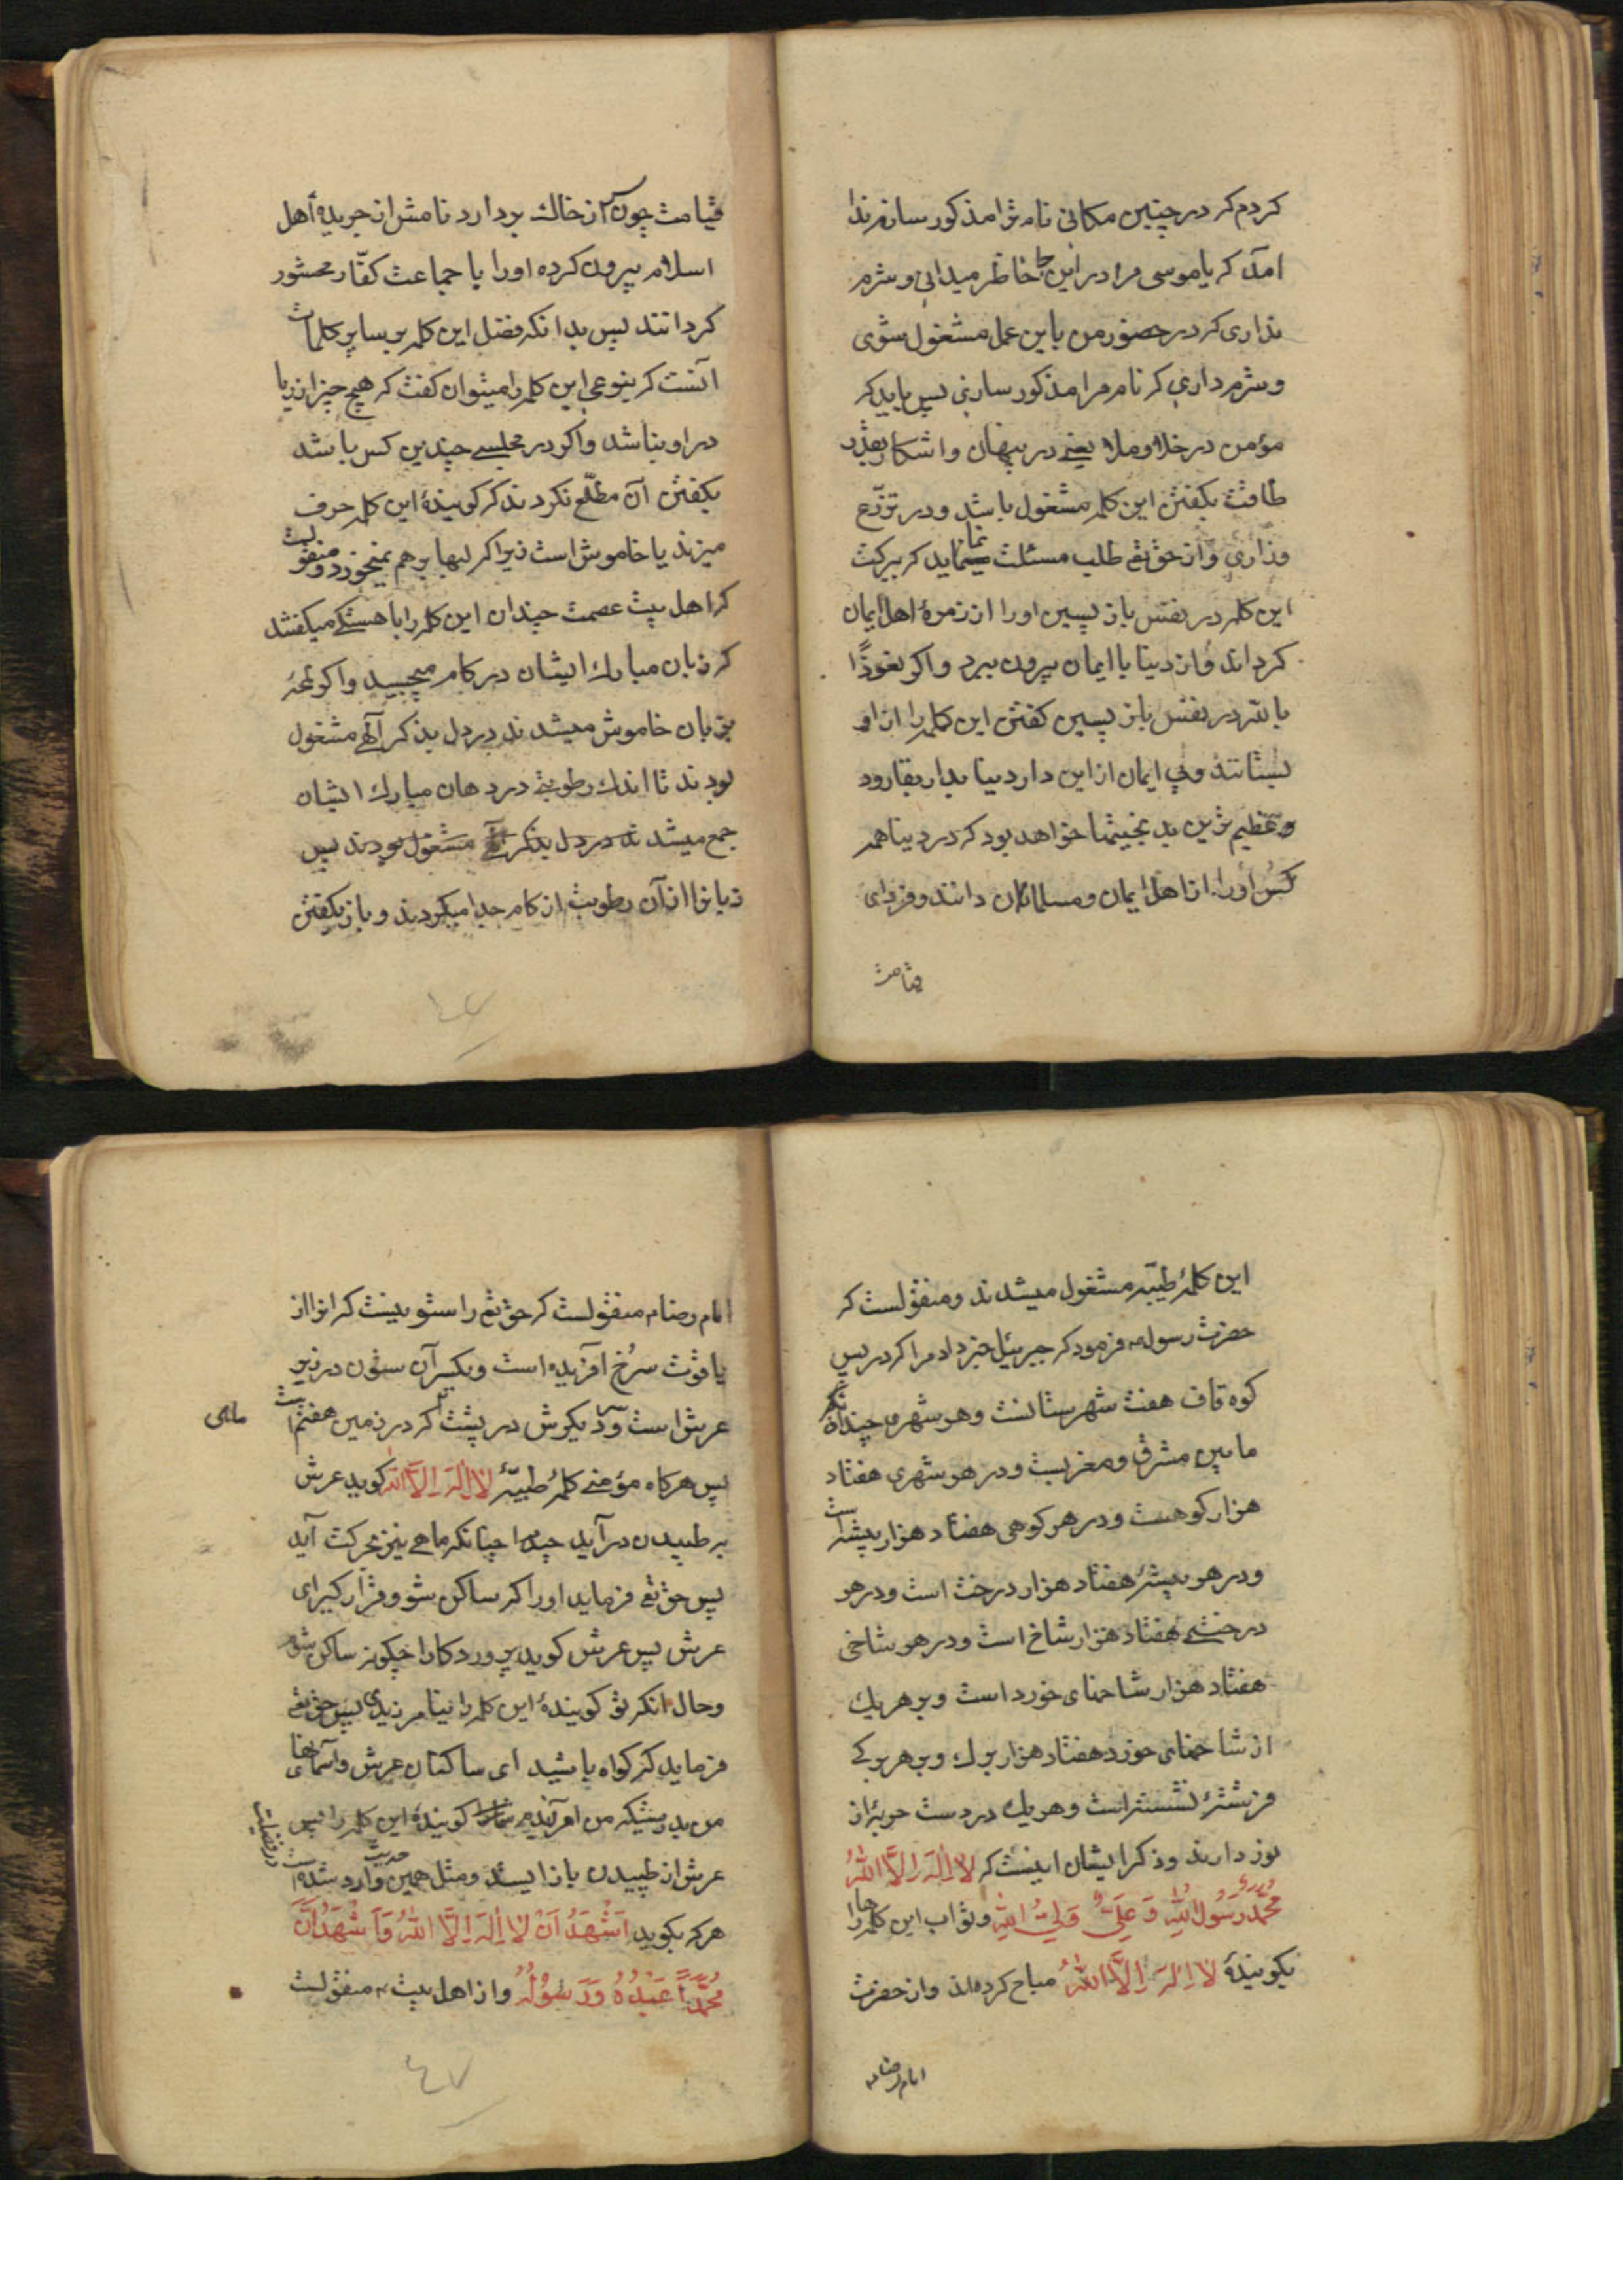 کردم که در چنین مکانی نام ترا مذکور سازم ندا
آمد که یا موسی مرا در این جا حاظر میدانی و شرم
نداری که در حضور من باین عمل مشغول شوی
و شرم داری که نام مرا مذکور سازی پس باید که
مؤمن در خلاو ملا یعنی در پنهان و اشکار بقدر
طاقت بکفتن این کلمه مشغول باشد و در تضرّع
وزاری و از حق تع طلب مسئلت نماید که ببرکت
این کلمه در نفس باز پسین اورا از زمرهٔ اهل ایمان
کرداند و از دنیا با ایمان بیرون ببرد و اکر نعوذًا
بالله در نفس باز پسین کفتن این کلمه را از او
بستانند و بی ایمان از این دار دنیا بدار بقا رود
و عظیم ترین بدبختیها خواهد بود که در دنیا همه
کس اورا از اهل ایمان و مسلمانان دانند و فردای
قیامت
قیامت چون سر از خاک بردارد نامش از جریدهٔ أهل
اسلام بیرون کرده اورا با جماعت کفّار محشور
کردانند پس بدانکه فضل این کلمه بر سایر کلمات
آنست که بنوعی این کلمه را میتوان کفت که هیچ چیز از ریا
در او نباشد واکر در مجلسی چندین کس باشد
بکفتن آن مطّلع نکردند که کویندهٔ این کلمه حرف
میزند یا خاموش است زیرا که لبها بر هم نمیخورد و منقولست
که اهل بیت عصمت چندان این کلمه را باهستکی میکفتند
که زبان مبارک ایشان در کام میچسبید و اکر لمحهٔ
بزبان خاموش میشدند در دل بذکر آلهی مشغول
بودند تا اندک رطوبتی در دهان مبارک ایشان
جمع میشد نه در دل بذکر آلهی مشغول بودند پس
زبانرا از آن رطوبت از کام جدا میکردند و باز بکفتن
٤٦
این کلمهٔ طیّبه مشغول میشدند و منقولست که
حضرت رسول ص فرمود که جبرئیل خبر داد مرا که در پس
کوه قاف هفت شهرستانست و هر شهری چندانکه
مابین مشرق و مغربست و در هر شهری هفتاد
هزار کوهست و در هر کوهی هفتاد هزار بیشه است
و در هر بیشهٔ هفتاد هزار درخت است و در هر
درختی هفتاد هزار شاخ است و در هر شاخی
هفتاد هزار شاخهای خورد است و بر هر یک
از شاخهای خورد هفتاد هزار برک و بر هر برکی
فرشتهٔ نشسته است و هر یک در دست حربهٔ از
نور دارند و ذکر ایشان اینست که لا اِلٰهَ اِلَّا اللّٰهُ
محمّدٌ رَسُولُ اللّٰهِ وَ عَلِیٌّ وَلِیُّ اللّٰهِ و ثواب این کلمه را
بکویندهٔ لا اِلٰهَ اِلَّا اللّٰهُ مباح کرده اند و از حضرت
امام رضا ع
امام رضا ع منقولست که حق تع را ستونیست که انرا از
یاقوت سرخ آفریده است و یکسر آن ستون در زیر
عرش است و سر دیکرش در پشت ماهی که در زمین هفتم است
پس هرکاه مؤمنی کلمهٔ طیبّهٔ لا اِلٰهَ اِلَّا اللّٰه کوید عرش
بر طپیدن در آید چنانکه ماهی نیز بحرکت آید
پس حق تع فرماید اورا که ساکن شو و قرار کیر ای
عرش پس عرش کوید پروردکارا چکونه ساکن شوم
و حال انکه تو کویندهٔ این کلمه را نیامرزیدی پس حق تع
فرماید که کواه باشید ای ساکنان عرش و آسمانهای
من بدرستیکه من آمرزیدم کویندهٔ این کلمه را پس
عرش از طپیدن باز ایستد و مثل همین حدیث وارد شده است در فضیلت
هرکه بکوید اَشْهَدُ اَنْ لا اِلٰهَ اِلَّا اللّٰهُ وَ اَشْهَدُ اَنَّ
مُحَمَّدًا عَبْدُهُ وَ رَسُولُهُ و از اهل بیت ع منقولست
٤٧